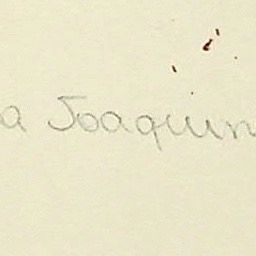 a Joaquin